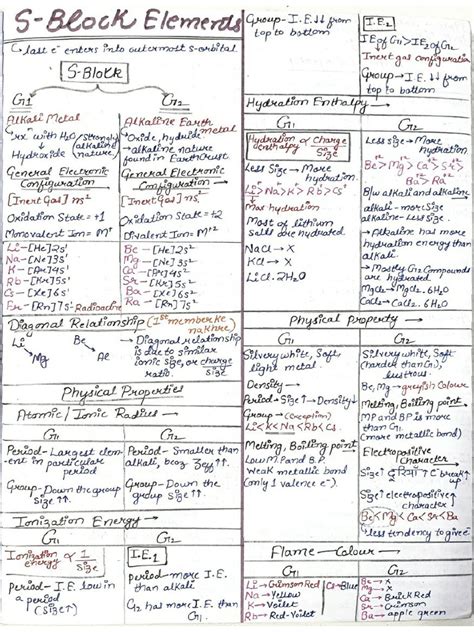 S-Block Elements
↳ last e⁻ enters into outermost s-orbital
S-Block
G1
Alkali Metal
↳ rxⁿ with H₂O (strongly alkaline nature)
↳ Hydroxide
General Electronic
Configuration
[Inert Gas] ns¹
Oxidation State = +1
Monovalent Ion = M⁺¹
Li - [He]2s¹
Na - [Ne]3s¹
K - [Ar]4s¹
Rb - [Kr]5s¹
Cs - [Xe]6s¹
Fr - [Rn]7s¹ Radioactive
G2
Alkaline Earth metal
↳ Oxide, hydride
↳ alkaline nature
found in Earth Crust
General Electronic
Configuration →
[Inert gas] ns²
Oxidation State = +2
Divalent Ion = M⁺²
Be - [He]2s²
Mg - [Ne]3s²
Ca - [Ar]4s²
Sr - [Kr]5s²
Ba - [Xe]6s²
Ra - [Rn]7s²
Diagonal Relationship (1st member ke nakhre)
Li Be
Mg Al
→ Diagonal relationship
is due to similar
ionic size, or charge
ratio size
Physical Properties
Atomic/Ionic Radius →
G1
Period - Largest elem-
ent in particular
period
Group - Down the group
Size ↑↑
G2
Period - Smaller than
alkali, bcoz Zeff ↑↑.
Group - Down the
group size ↑↑
Ionization Energy →
G1
Ionization energy ∝ 1/Size
Period - I.E. low in
a period
(Size ↑)
I.E.1 G2
period - more I.E.
than alkali
G2 has more I.E. than
G1
Group - I.E. ↓↓ from
top to bottom
I.E.2
IE of G1 > IE2 of G2
Inert gas configuration
Group → I.E. ↓↓ from
top to bottom
Hydration Enthalpy →
G1
Hydration enthalpy ∝ Charge/Size
Less Size → More
hydration.
Li > Na > K > Rb > Cs
Max hydration
Most of lithium
salts are hydrated
NaCl → X
KCl → X
LiCl.2H₂O
G2
Less size → More
hydration
Be > Mg > Ca > Sr >
Ba > Ra
B/w alkali and alkaline
alkali - more size
alkaline - Less size.
→ Alkaline has more
hydration energy than
alkali.
→ Mostly G2 Compounds
are hydrated
MgCl₂ → MgCl₂.6H₂O
CaCl₂ → CaCl₂.6H₂O
Physical Property →
G1
Silvery white, Soft,
light metal.
Density →
Period - Size ↑ → Density ↓
Group → (exception)
Li < K < Na < Rb < Cs
Melting, Boiling point
Low M.P and B.P
weak metallic bond
(only 1 valence e⁻).
G2
Silvery white, Soft
(harder than G1),
lustrous.
Be, Mg → greyish Colour
Melting, Boiling point
MP and BP is more
than G1.
(more metallic bond)
Electropositive
Character
Size ↑ e⁻ break ↑
up
Size ↑ electropositive
character ↑
Be < Mg < Ca < Sr < Ba
↳ less tendency to give e⁻
Flame - Colour →
G1
Li → Crimson Red
Na → Yellow
K → Voilet
Rb → Red-Voilet
Cs → Blue
G2
Be → X
Mg → X
Ca → Brick Red
Sr → Crimson
Ba → apple green